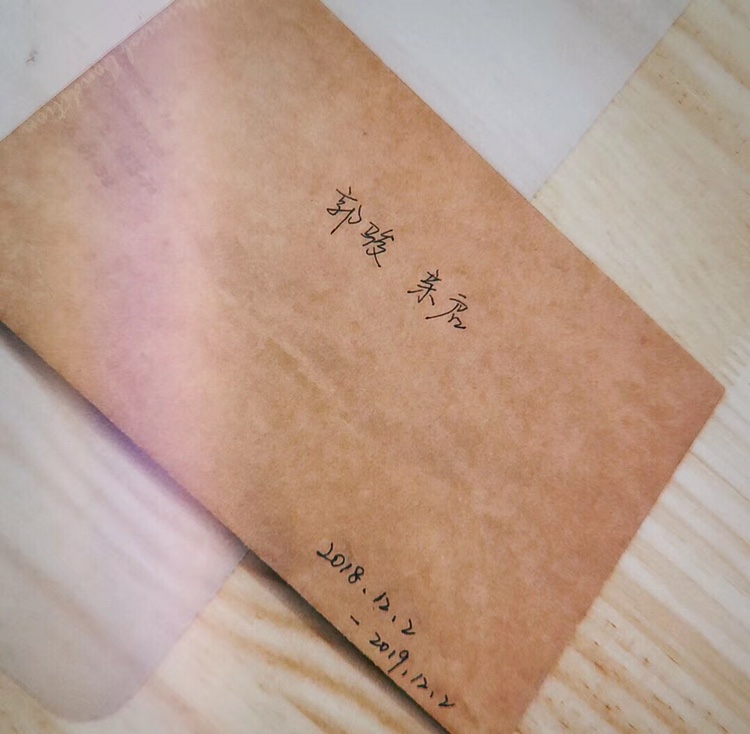 郭骏 亲启
2018.12.2
- 2019.12.2